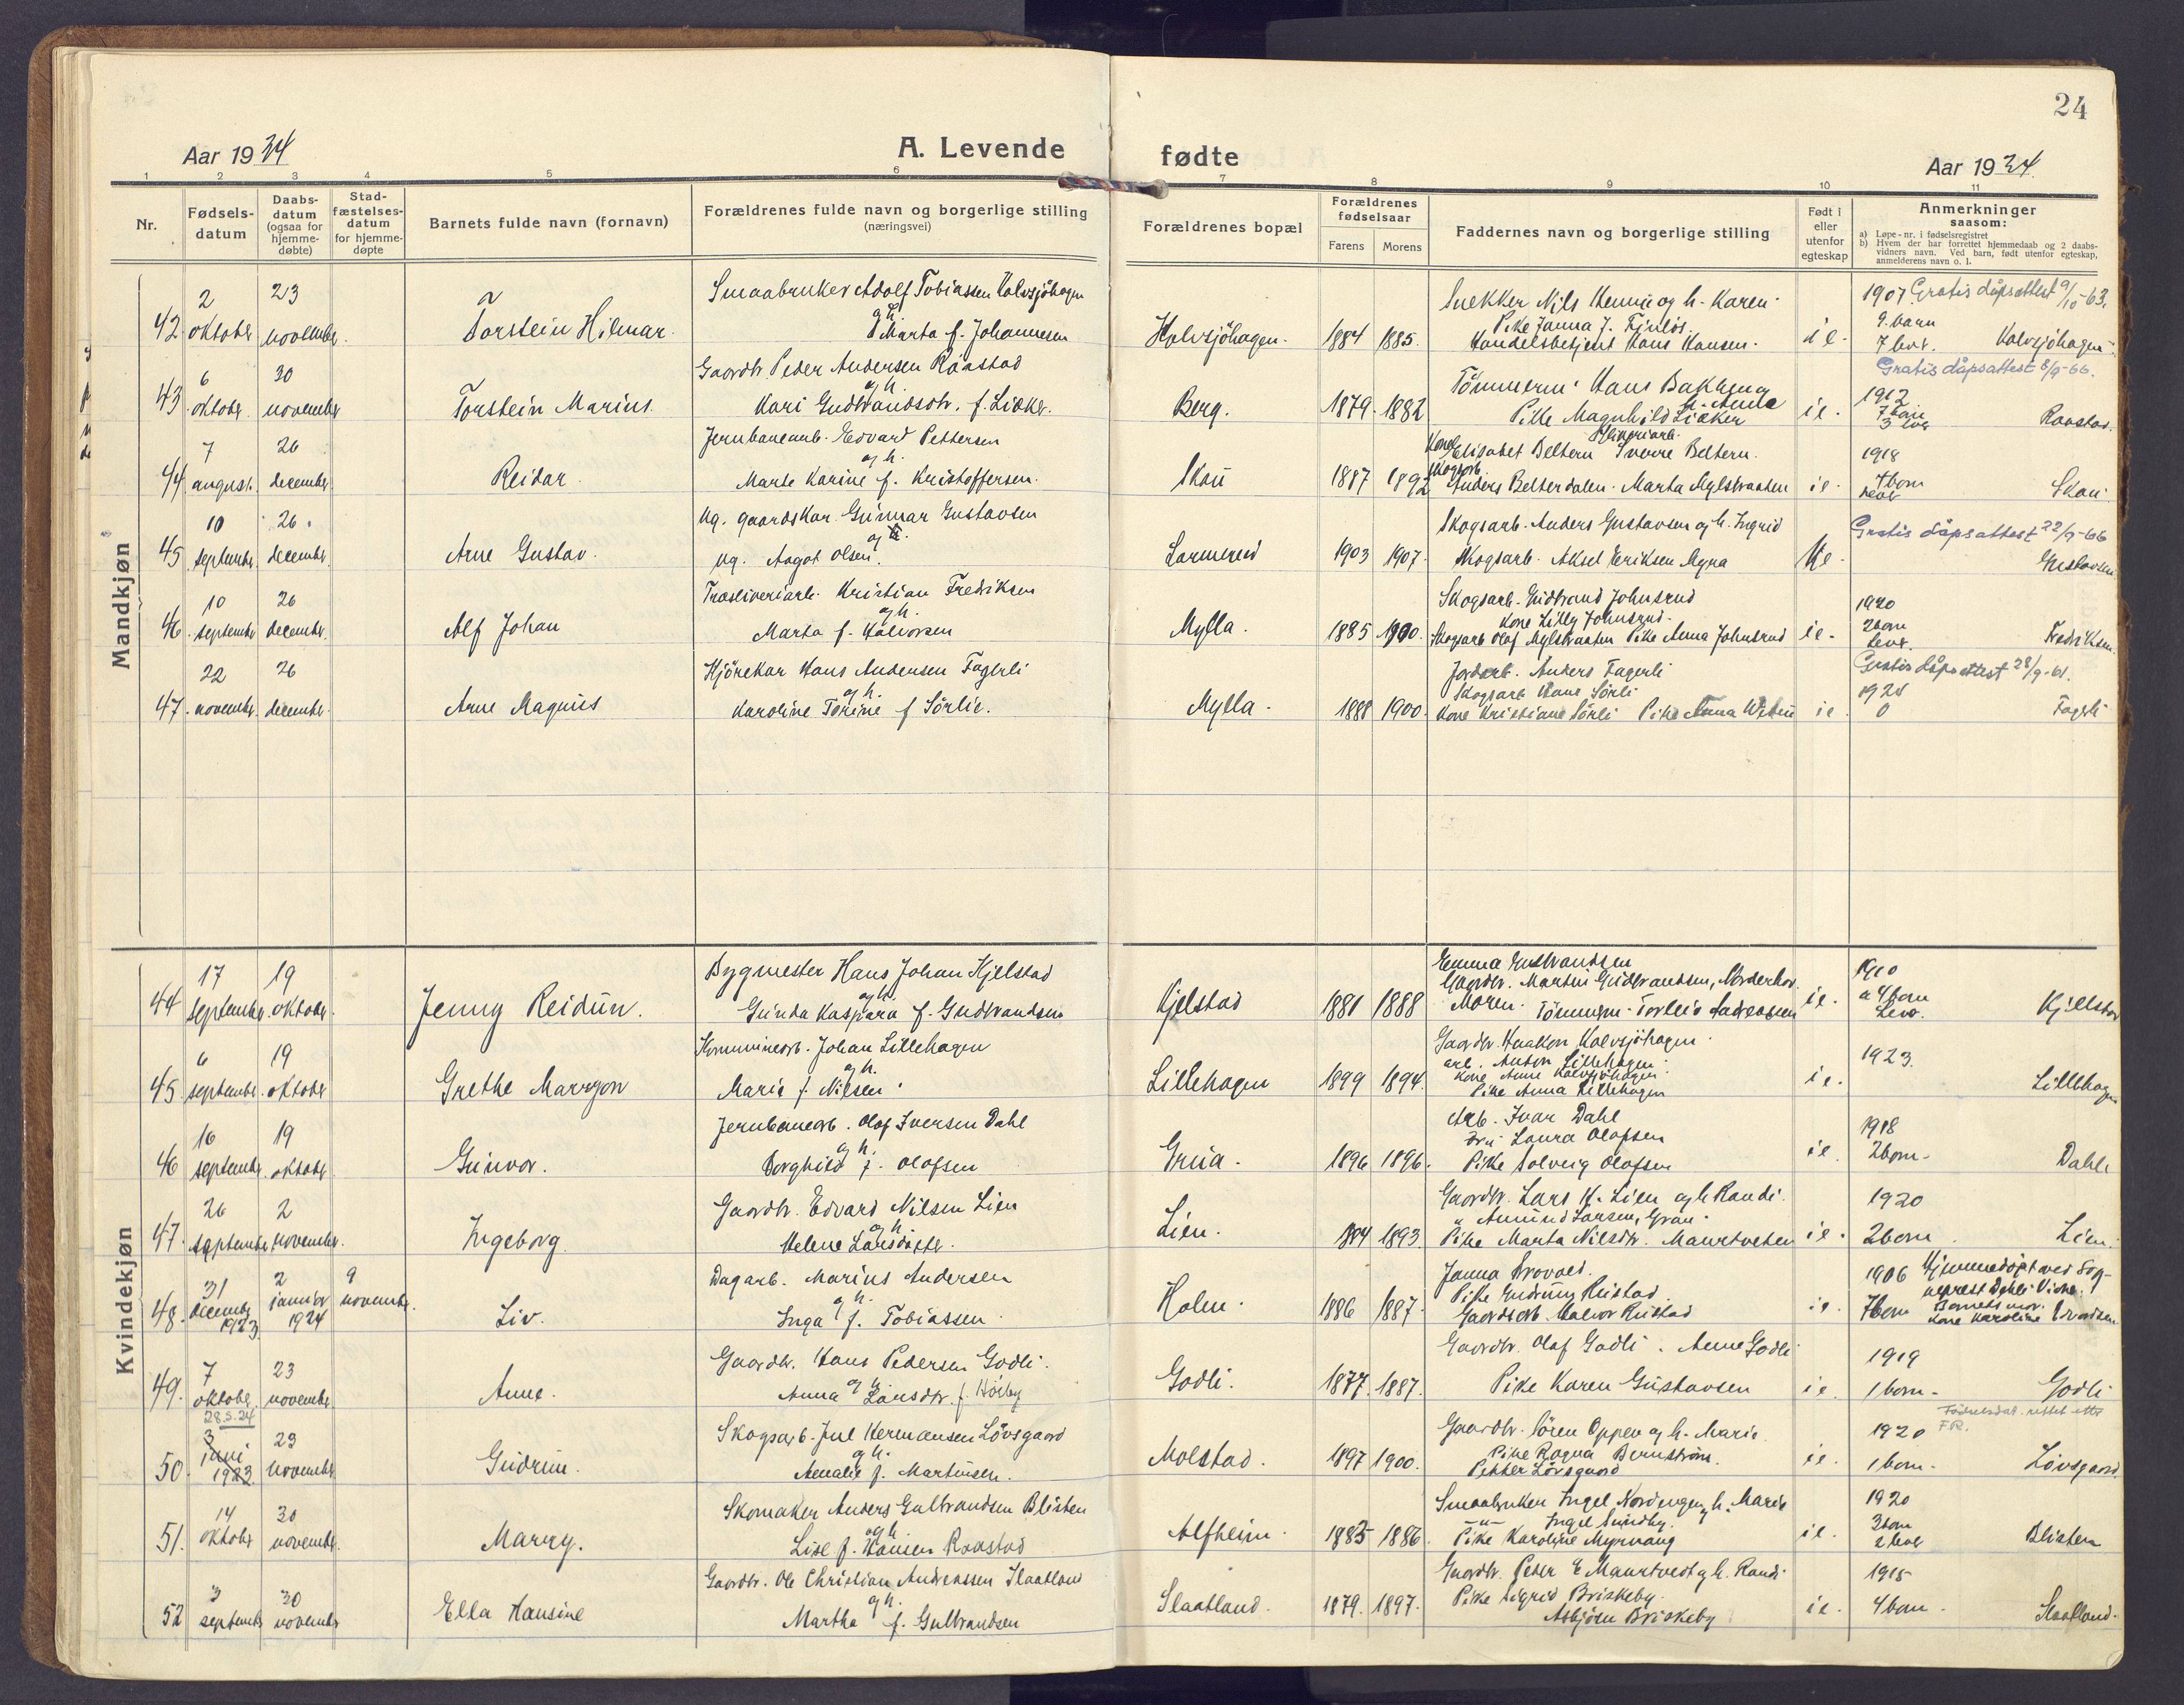 24
Aar 1924
A. Levende fødte
Aar 1924
1 2 3 4 5 6 7 8 9 10 11
Nr.
Fødsels-
datum
Daabs-
datum
(ogsaa for
hjemme-
døbte)
Stad-
fæstelses-
datum
for hjemme-
døpte
Barnets fulde navn (fornavn)
Forældrenes fulde navn og borgerlige stilling
(næringsvei)
Forældrenes bopæl
Forældrenes
fødselsaar
Farens
Morens
Faddernes navn og borgerlige stilling
Født i
eller
utenfor
egteskap
Anmerkninger
saasom:
a) Løpe-nr. i fødselsregistret
b) Hvem der har forrettet hjemmedaab og 2 daabs-
vidners navn. Ved barn, født utenfor egteskap,
anmelderens navn o. l.
Mandkjøn
42 2 oktober 23 november. Torstein Hilmar.
Smaabruker Adolf Tobiassen Kalvsjöhagen
og h.
Marta f. Johannesen
Kalvsjöhagen. 1884 1885.
Snekker Nils Hennie og h. Karen.
Pike Janna J. Finlös.
Handelsbetjent Hans Hansen.
i e.
1907 Gratis dåpsattest 9/10-63.
9. barn
7 lever. Kalvsjöhagen.
43 6 oktober. 30 november Torstein Marius.
Gaardbr. Peder Andersen Råastad
og h.
Kari Gudbrandsdtr. f. Lieker.
Berg. 1879. 1882
Tömmerm. Hans Bakken og
h. Anna
Pike Magnhild Lieker
i e.
Gratis dåpsattest 8/9-66.
1912
7 barn
3 lever Raastad.
44 7 august. 26 december. Reidar.
Jernbanearb. Edvard Pettersen
og h.
Marte Karine f. Kristoffersen.
Skau 1887 1892
Kone Elisabet Beltern Sliperiarb. Sverre Beltern.
Skogarb.
Anders Belterdalen. Marta Mylstraaten
i e.
1918
4 barn
lever Skau
45 10 september. 26. december. Arne Gustav.
Ug. gaardskar Gunnar Gustavsen
og
Ug. Aagot Olsen.
Larmerud 1903 1907.
Skogsarb. Anders Gustavsen og h. Ingrid
Skogsarb. Aksel Eriksen Myra
U e.
Gratis dåpsattest 22/9-66
Gustavsen
46. 10 september 26 december. Alf Johan
Træsliperiarb. Kristian Fredriksen
og h.
Marta f. Halvorsen
Mylla. 1885 1900.
Skogsarb. Gudbrand Johnsrud
Kone Lilly Johnsrud.
Skogsarb Olaf Mylstraaten Pike Anna Johnsrud
i e.
1920
2 barn
lever. Fredriksen.
47. 22 november. 26 december. Arne Magnus
Kjörekar Hans Andersen Fagerli
og h.
Karoline Tonine f Sörlie.
Mylla. 1888 1900.
Jordarb. Anders Fagerli
Skogsarb Hans Sörli
Kone Kristiane Sörli Pike Anna
i e.
Gratis dåpsattest 28/9-61.
1924
0 Fagerli
Kvindekjøn
44 17 september. 19 oktober. Jenny Reidun.
Bygmester Hans Johan Kjelstad
og h.
Gunda Kaspara f. Gudbrandsen
Kjelstad 1881 1888
Emma Gudbrandsen
Gaardbr. Martin Gudbrandsen, Norderhov.
Maren. Tömmerm. Torleiv Andreassen
i e.
1910
a 4 barn
Lever. Kjellstad
45. 6 september. 19 oktober Grethe Marryon
Kommunearb. Johan Lillehagen
og h.
Marie f. Nilsen.
Lillehagen 1899 1894.
Gaardbr. Haakon Kalvsjöhagen.
arb. Anton Lillehagen.
Kone Anne Kalvsjöhagen.
Pike Anna Lillehagen
i e.
1923.
Lillehagen
46 16 september. 19 oktober. Gunvor.
Jernbanearb. Olaf Iversen Dahl
og h.
Borghild f. Olafsen
Grua. 1896 1896.
Arb. Ivar Dahl
Fru Laura Olafsen
Pike Solveig Olafsen
i e.
1918
2 barn. Dahl.
47. 26 september 2 november. Ingeborg.
Gaardbr. Edvard Nilsen Lien
og h.
Helene Larsdatter.
Lien. 1884 1893.
Gaardbr. Lars K. Lien og h Randi.
" Amund Larsen, Gran.
Pike Marta Nilsdtr. Maurtveten
i e.
1920
2 barn. Lien.
48. 31 december 1923 2 januar 1924 9 november. Liv.
Dagarb. Marius Andersen
og h.
Inga f. Tobiassen.
Holen. 1886 1887.
Janna Brovold.
Pike Gudrun Rustad.
Gaardsarb. Halvor Rustad
i e.
1906 Hjemmedöpt ved Sog-
neprest Dahl. Vidne:
7 barn Barnets mor.
Kone Karoline
49. 7 oktober. 23 november. Anne.
Gaardbr. Hans Pedersen Godli.
og h.
Anna Larsdtr. f. Hörby
Godli. 1877. 1887.
Gaardbr. Olaf Godli. Anne Godli
Pike Karen Gustavsen
i e.
1919
1 barn. Godli
50. 28.5.24 3 juni 1923. 23 november. Gudrun.
Skogsarb. Juel Hermansen Lövsgaard
og h.
Amalie f. Martinsen.
Molstad. 1897 1900.
Gaardbr. Sören Oppen og h. Marie.
Pike Ragna Bernström.
Petter Lövsgaard
i e.
Födselsdat. rettet etter
F.R.
1920
1 barn. Lövsgaard.
51. 14 oktober 30 november. Marry.
Skomaker Anders Gulbrandsen Blisten
og h.
Lise f. Hansen Raastad
Alfheim. 1885 1886.
Smaabruker Ingel Nordengen og h. Marie
—"— Ingel Sundby.
Pike Karoline Myrvang
i e.
1920
3 barn
2 lever Blisten
52 3 september 30 november Ella Hansine
Gaardbr. Ole Christian Andreassen Slaatland
og h.
Martha f. Gulbrandsen
Slaatland. 1879. 1897.
Gaardbr. Peder E Maurtvedt og h. Randi.
Pike Sigrid Briskeby.
Asbjörn Briskeby
i e.
1915
4 barn. Slaatland.